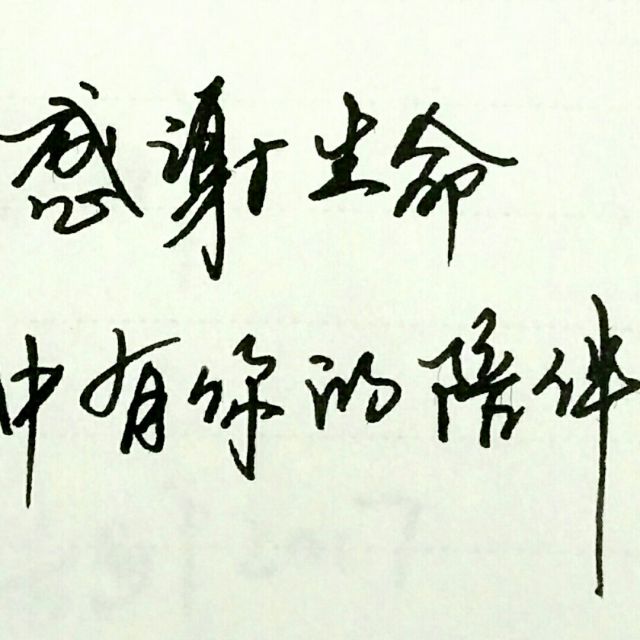 感谢生命
中有你的陪伴